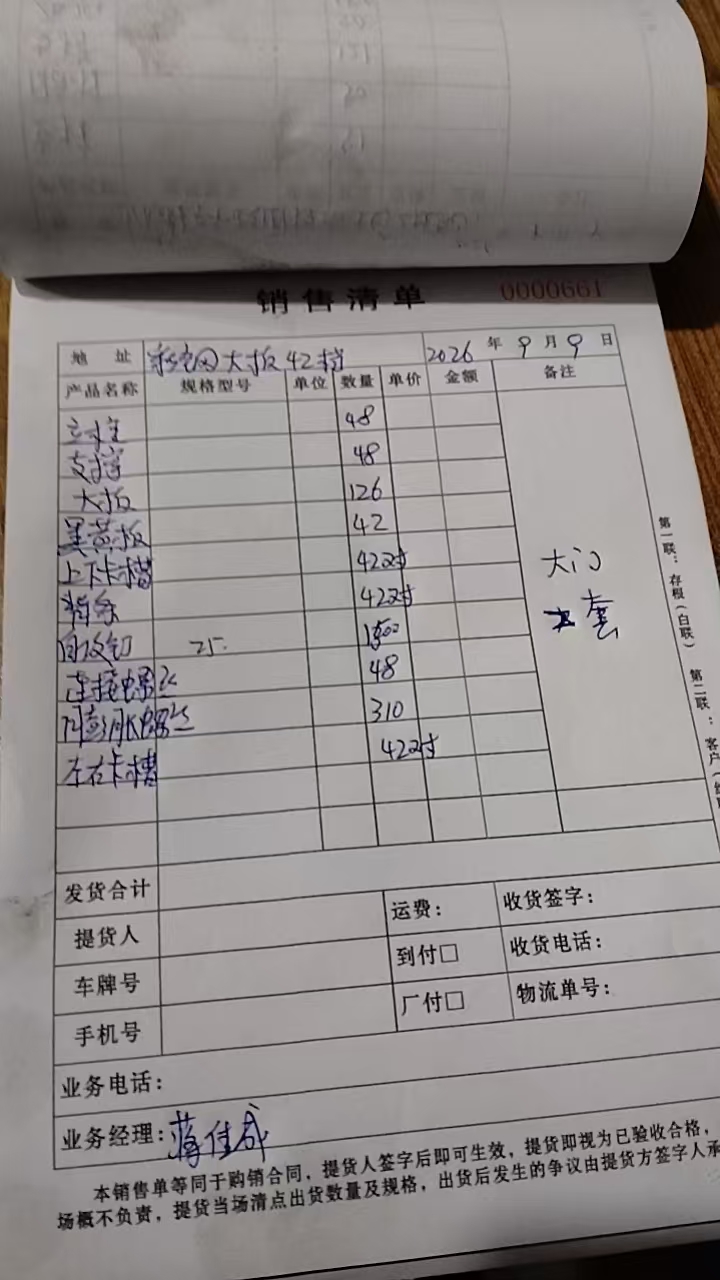 销售清单 0000661
地 址 彩钢大板42挡 2026 年 9 月 9 日
产品名称 规格型号 单位 数量 单价 金额 备注
立柱 48
支撑 48
大板 126
黑黄板 42
上下卡槽 42对
背条 42对
自攻钉 25. 1500
连接螺丝 48
膨胀螺丝 310
左右卡槽 42对
大门
套
第一联：存根（白联） 第二联：客户
发货合计
提货人 运费： 收货签字：
车牌号 到付□ 收货电话：
手机号 厂付□ 物流单号：
业务电话：
业务经理：蒋佳成
本销售单等同于购销合同，提货人签字后即可生效，提货即视为已验收合格，
场概不负责，提货当场清点出货数量及规格，出货后发生的争议由提货方签字人承